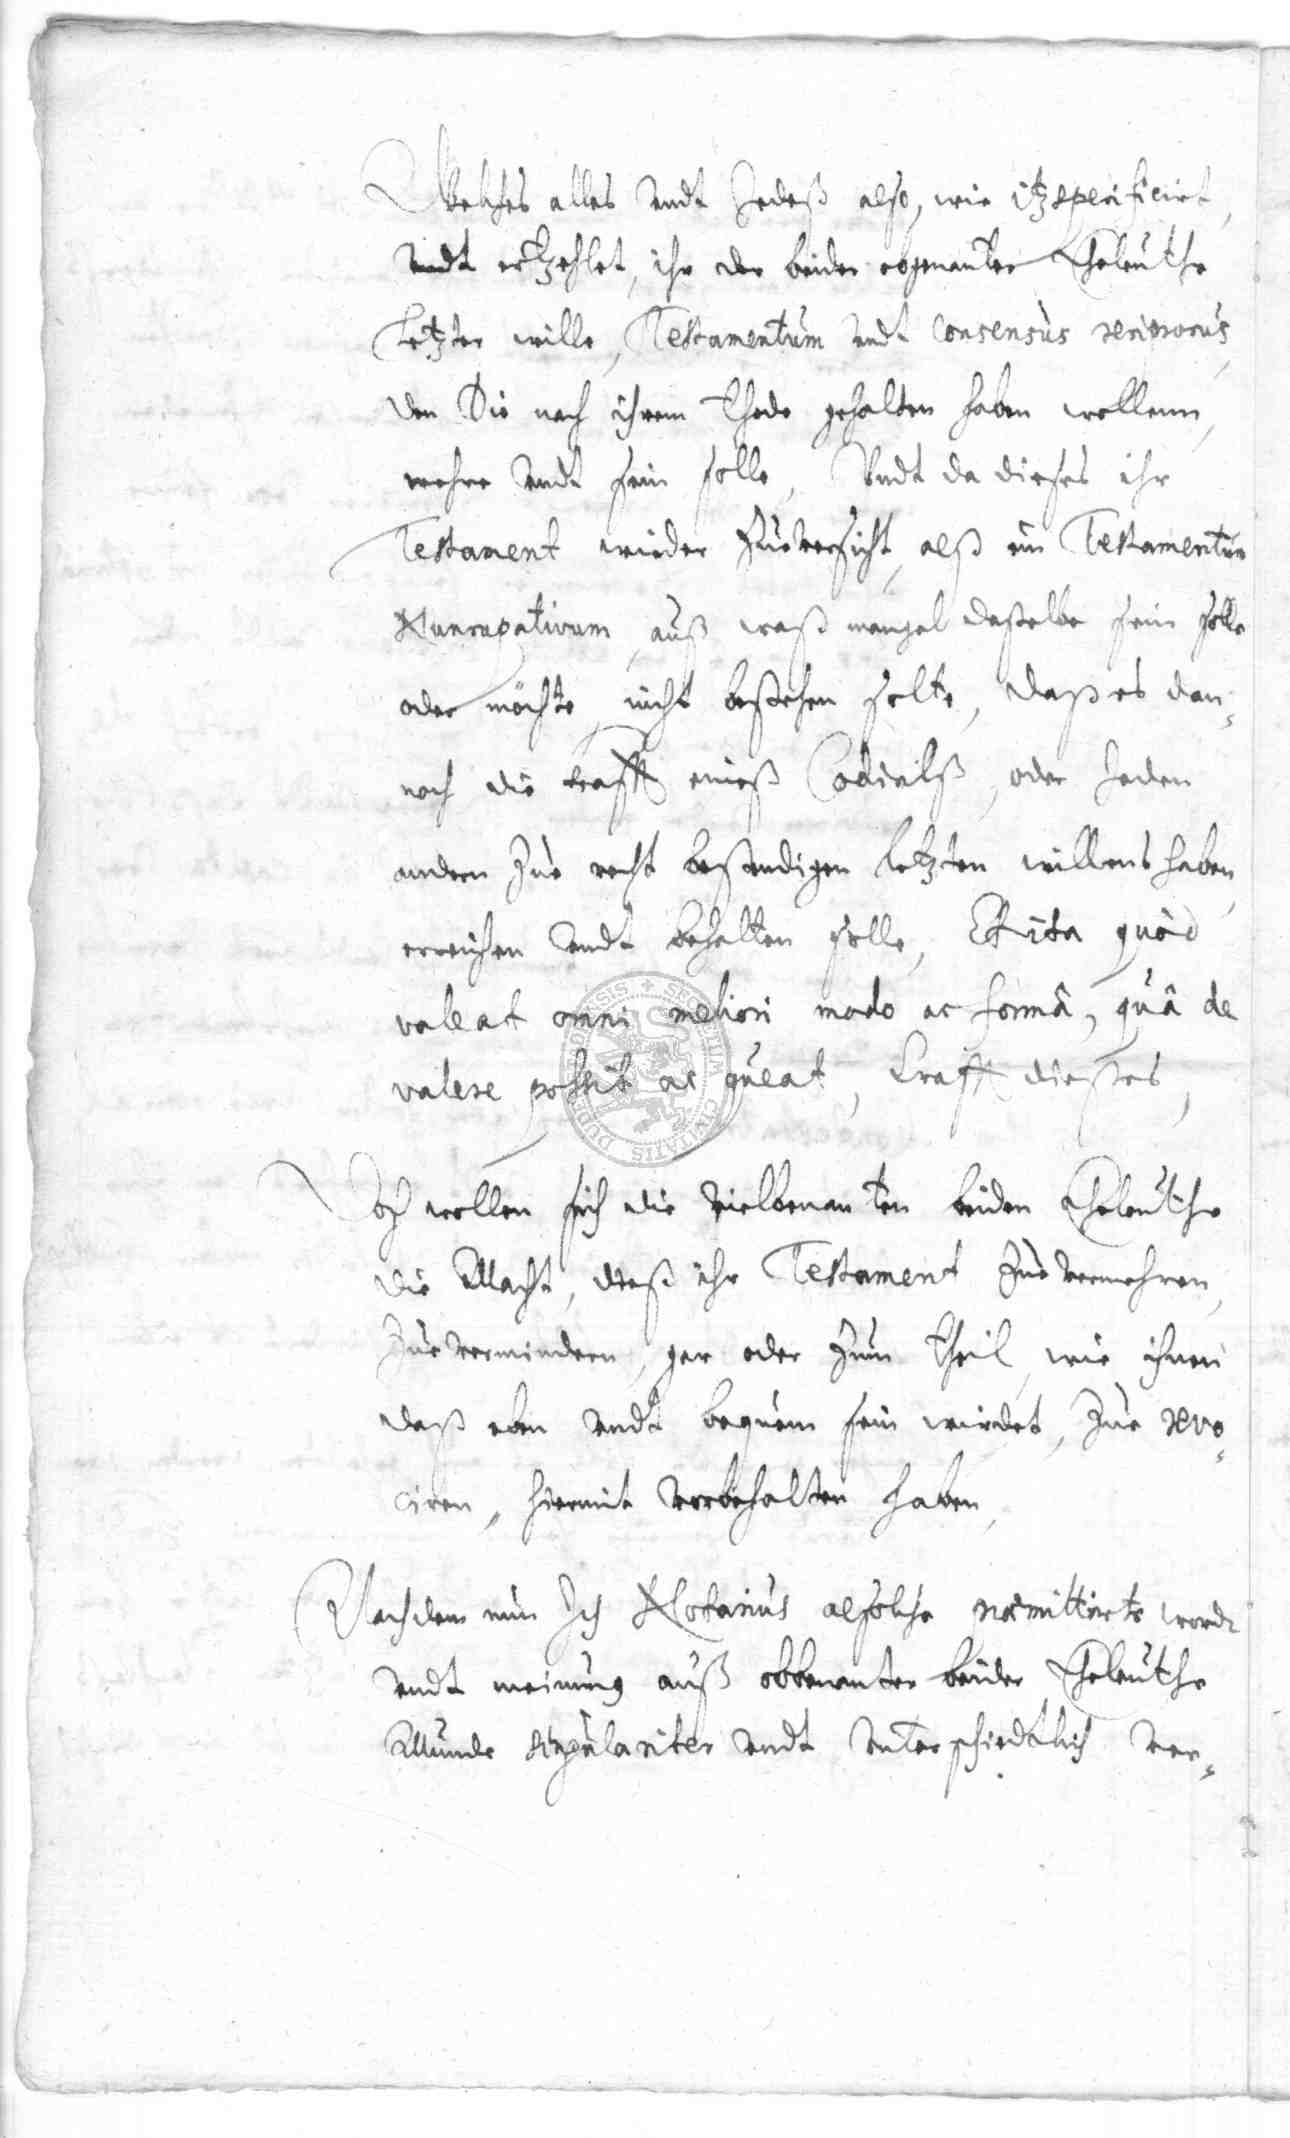 Welches alles undt Jedeß also, wie itz specificirt,
undt ertzehlet, ihr der beider obgenanter Eheleuthe
letzter wille, Testamentum undt Consensus reciprocus,
den Sie nach ihrem Thode gehalten haben wollenn,
wehre undt sein solle, Undt da dieses ihr
Testament wieder Zuversicht, alß ein Testamentum
Nuncupativum, auß waß mangel daßelbe sein solle
oder möchte, nicht bestehen solte, daß es den-
noch die krafft eineß Codicilß, oder Jeden
andern Zue recht bestendigen letzten willens haben,
erreichen undt behalten solle, Et ita quòd
valeat omni meliori modo ac formâ, quâ de
valere possit ac queat, Krafft dießes,
Doch wollen sich die vielbenanten beiden Eheleuthe
die Macht, dieß ihr Testament Zue vermehren,
Zue vermindern, gar oder Zum theil, wie ihnen
daß eben undt bequem sein wirdet, Zue revo-
ciren, hiermit vorbehalten haben,
Nachdem nun Ich Notarius alsolche præmittirte wordt
undt meinung auß obbenanter beider Eheleuthe
Munde singulariter undt unterschiedtlich ver-
SIGILLUM CIVITATIS DUDERSTADENSIS